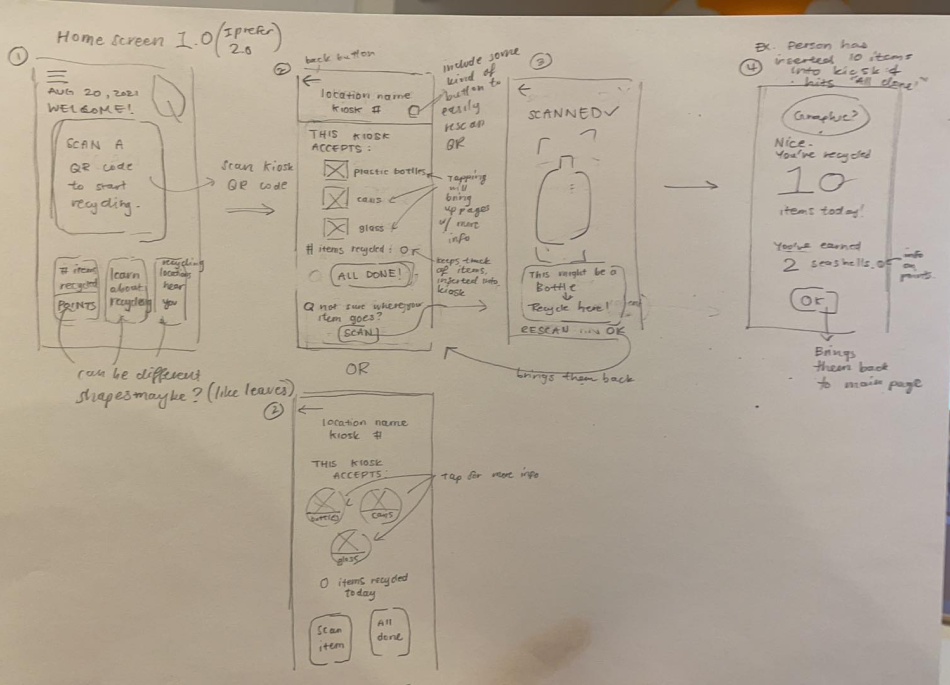 Home screen 1.0 (I prefer 2.0)
①
AUG 20, 2021
WELCOME!
SCAN A
QR code
to start
recycling.
# items
recycled
POINTS
learn
about
recycling
recycling
locations
near
you
can be different
shapes maybe? (like leaves)
Scan kiosk
QR code
back button
②
location name
kiosk #
include some
kind of
button to
easily
rescan
QR
THIS KIOSK
ACCEPTS:
plastic bottles
cans
glass
Tapping
will
bring
up pages
w/ more
info
# items recycled: 0
keeps track
of items
inserted into
kiosk
ALL DONE!
Q not sure where your
item goes?
SCAN
OR
②
location name
kiosk #
THIS KIOSK
ACCEPTS:
bottles
cans
glass
tap for more info
0 items recycled
today
Scan
item
All
done
③
SCANNED ✓
This might be a
Bottle
↓
Recycle here!
RESCAN OK
brings them back
Ex. Person has
inserted 10 items
into kiosk &
hits "All done"
④
Graphic?
Nice.
You've recycled
10
items today!
You've earned
2 seashells.
info
on
points.
OK
Brings
them back
to main page